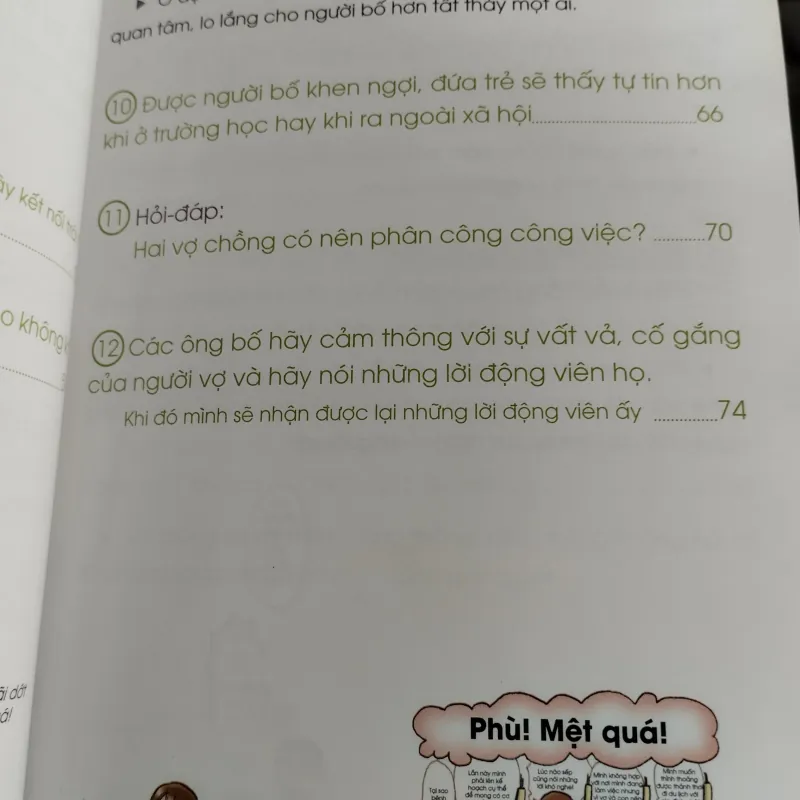 quan tâm, lo lắng cho người bố hơn tất thảy một ai.
10 Được người bố khen ngợi, đứa trẻ sẽ thấy tự tin hơn
khi ở trường học hay khi ra ngoài xã hội..............................66
11 Hỏi-đáp:
Hai vợ chồng có nên phân công công việc? ............70
12 Các ông bố hãy cảm thông với sự vất vả, cố gắng
của người vợ và hãy nói những lời động viên họ.
Khi đó mình sẽ nhận được lại những lời động viên ấy ..............74
kết nối
o không
dốt
Phù! Mệt quá!
Tại sao
bệnh
Lần này mình
phải lên kế
hoạch cụ thể
để mong có cơ
Lúc nào sếp
cũng nói những
lời khó nghe!
Mình không hợp
với nơi mình đang
làm việc nhưng
vì vợ và con nên
Mình muốn
thỉnh thoảng
được thảnh thơi
đi du lịch với